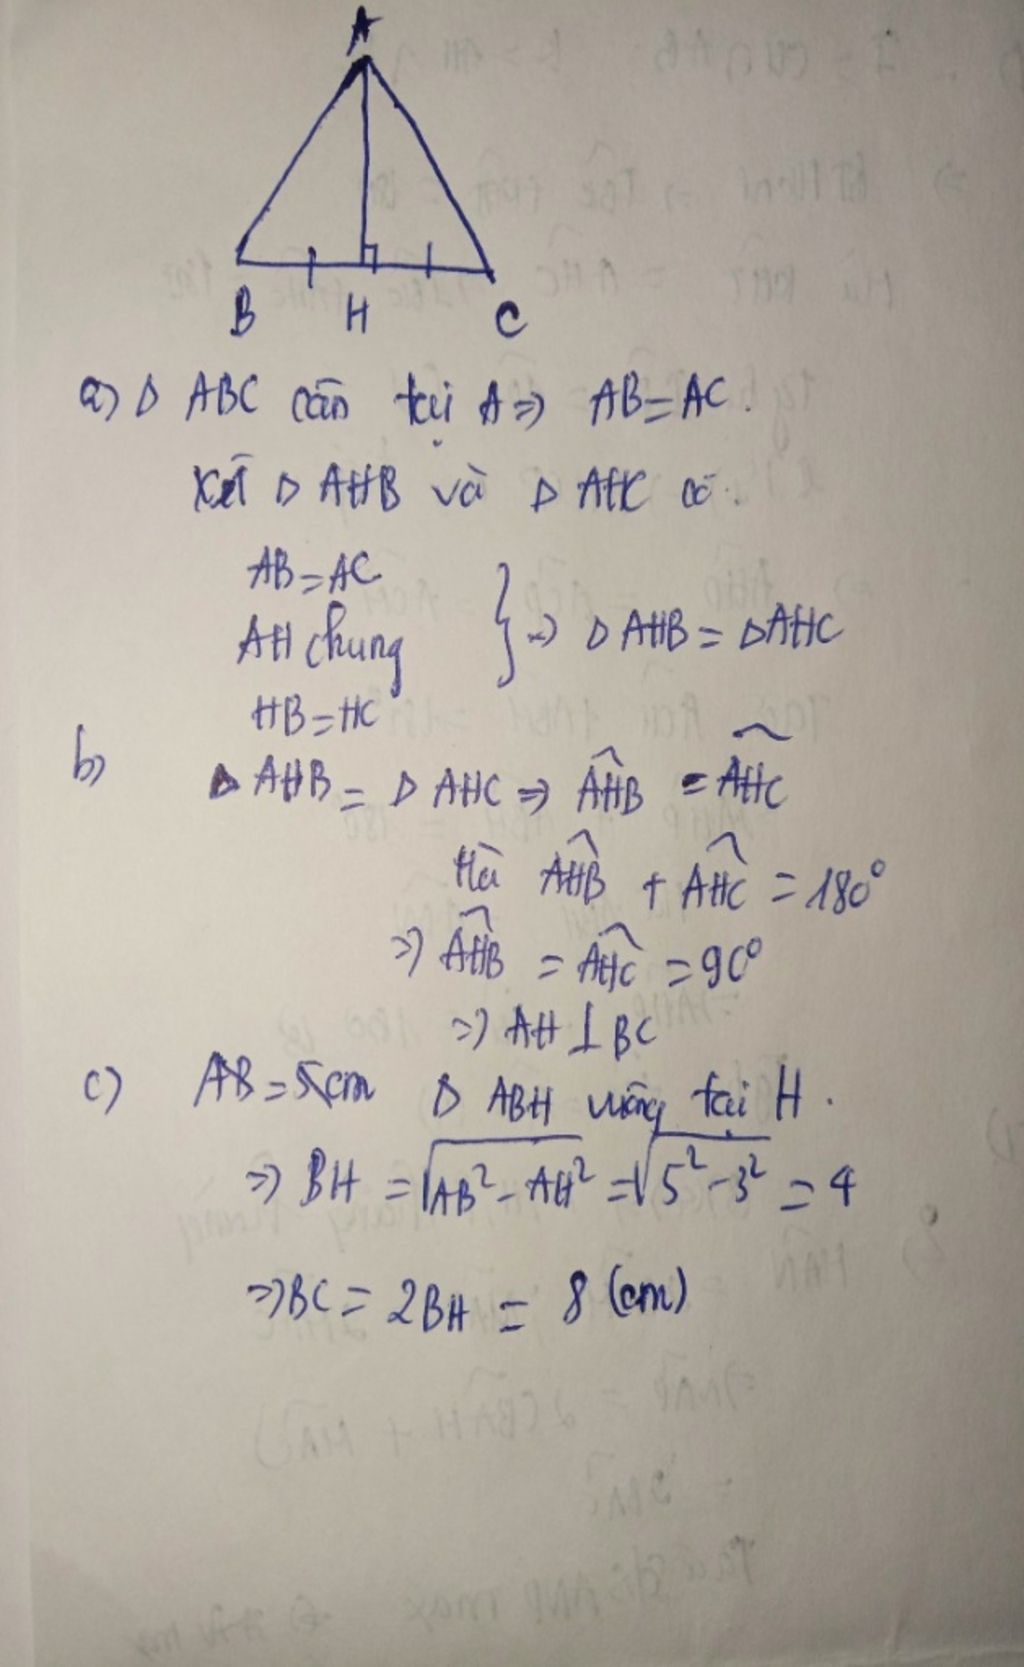 A
B H C
a) Δ ABC cân tại A => AB = AC.
Xét Δ AHB và Δ AHC có:
AB = AC
AH chung } => Δ AHB = Δ AHC
HB = HC
b) Δ AHB = Δ AHC => \widehat{AHB} = \widehat{AHC}
Mà \widehat{AHB} + \widehat{AHC} = 180°
=> \widehat{AHB} = \widehat{AHC} = 90°
=> AH ⊥ BC
c) AB = 5cm Δ ABH vuông tại H.
=> BH = √(AB² - AH²) = √(5² - 3²) = 4
=> BC = 2BH = 8 (cm)